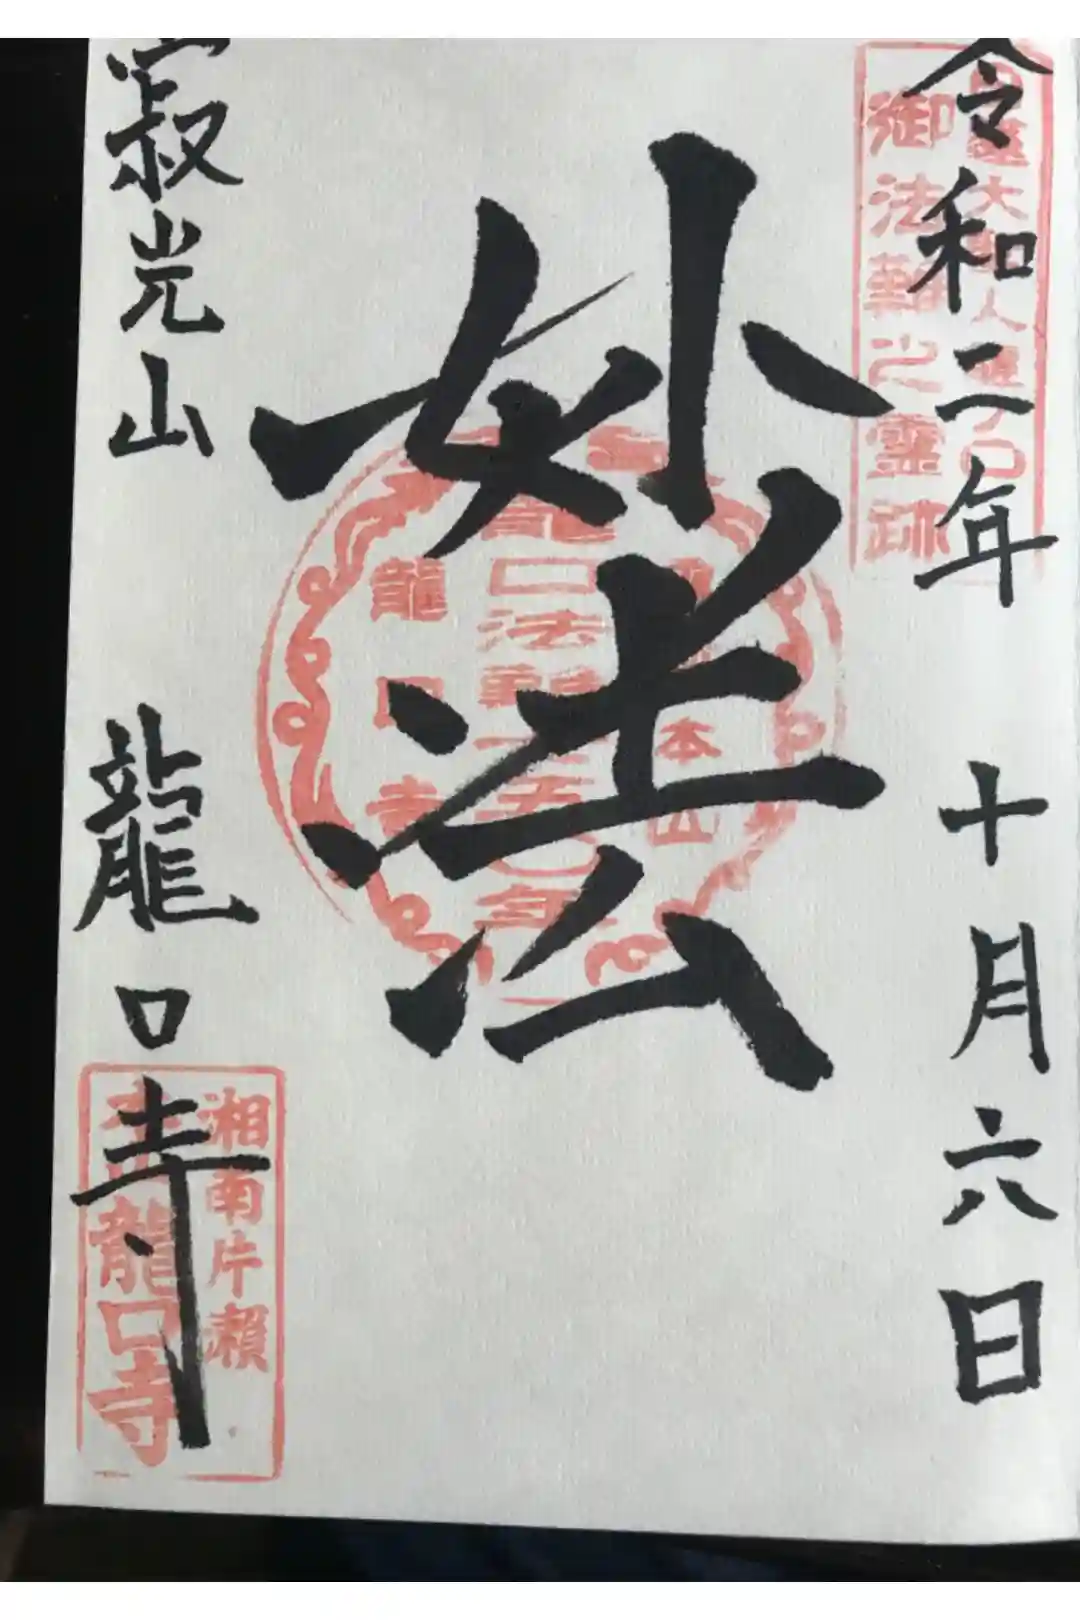 令和二年 十月六日
大
人
口
御法難之霊跡
妙法
本山
龍口法難
年
龍口寺
寂光山 龍口寺
湘南片瀬
本山龍口寺